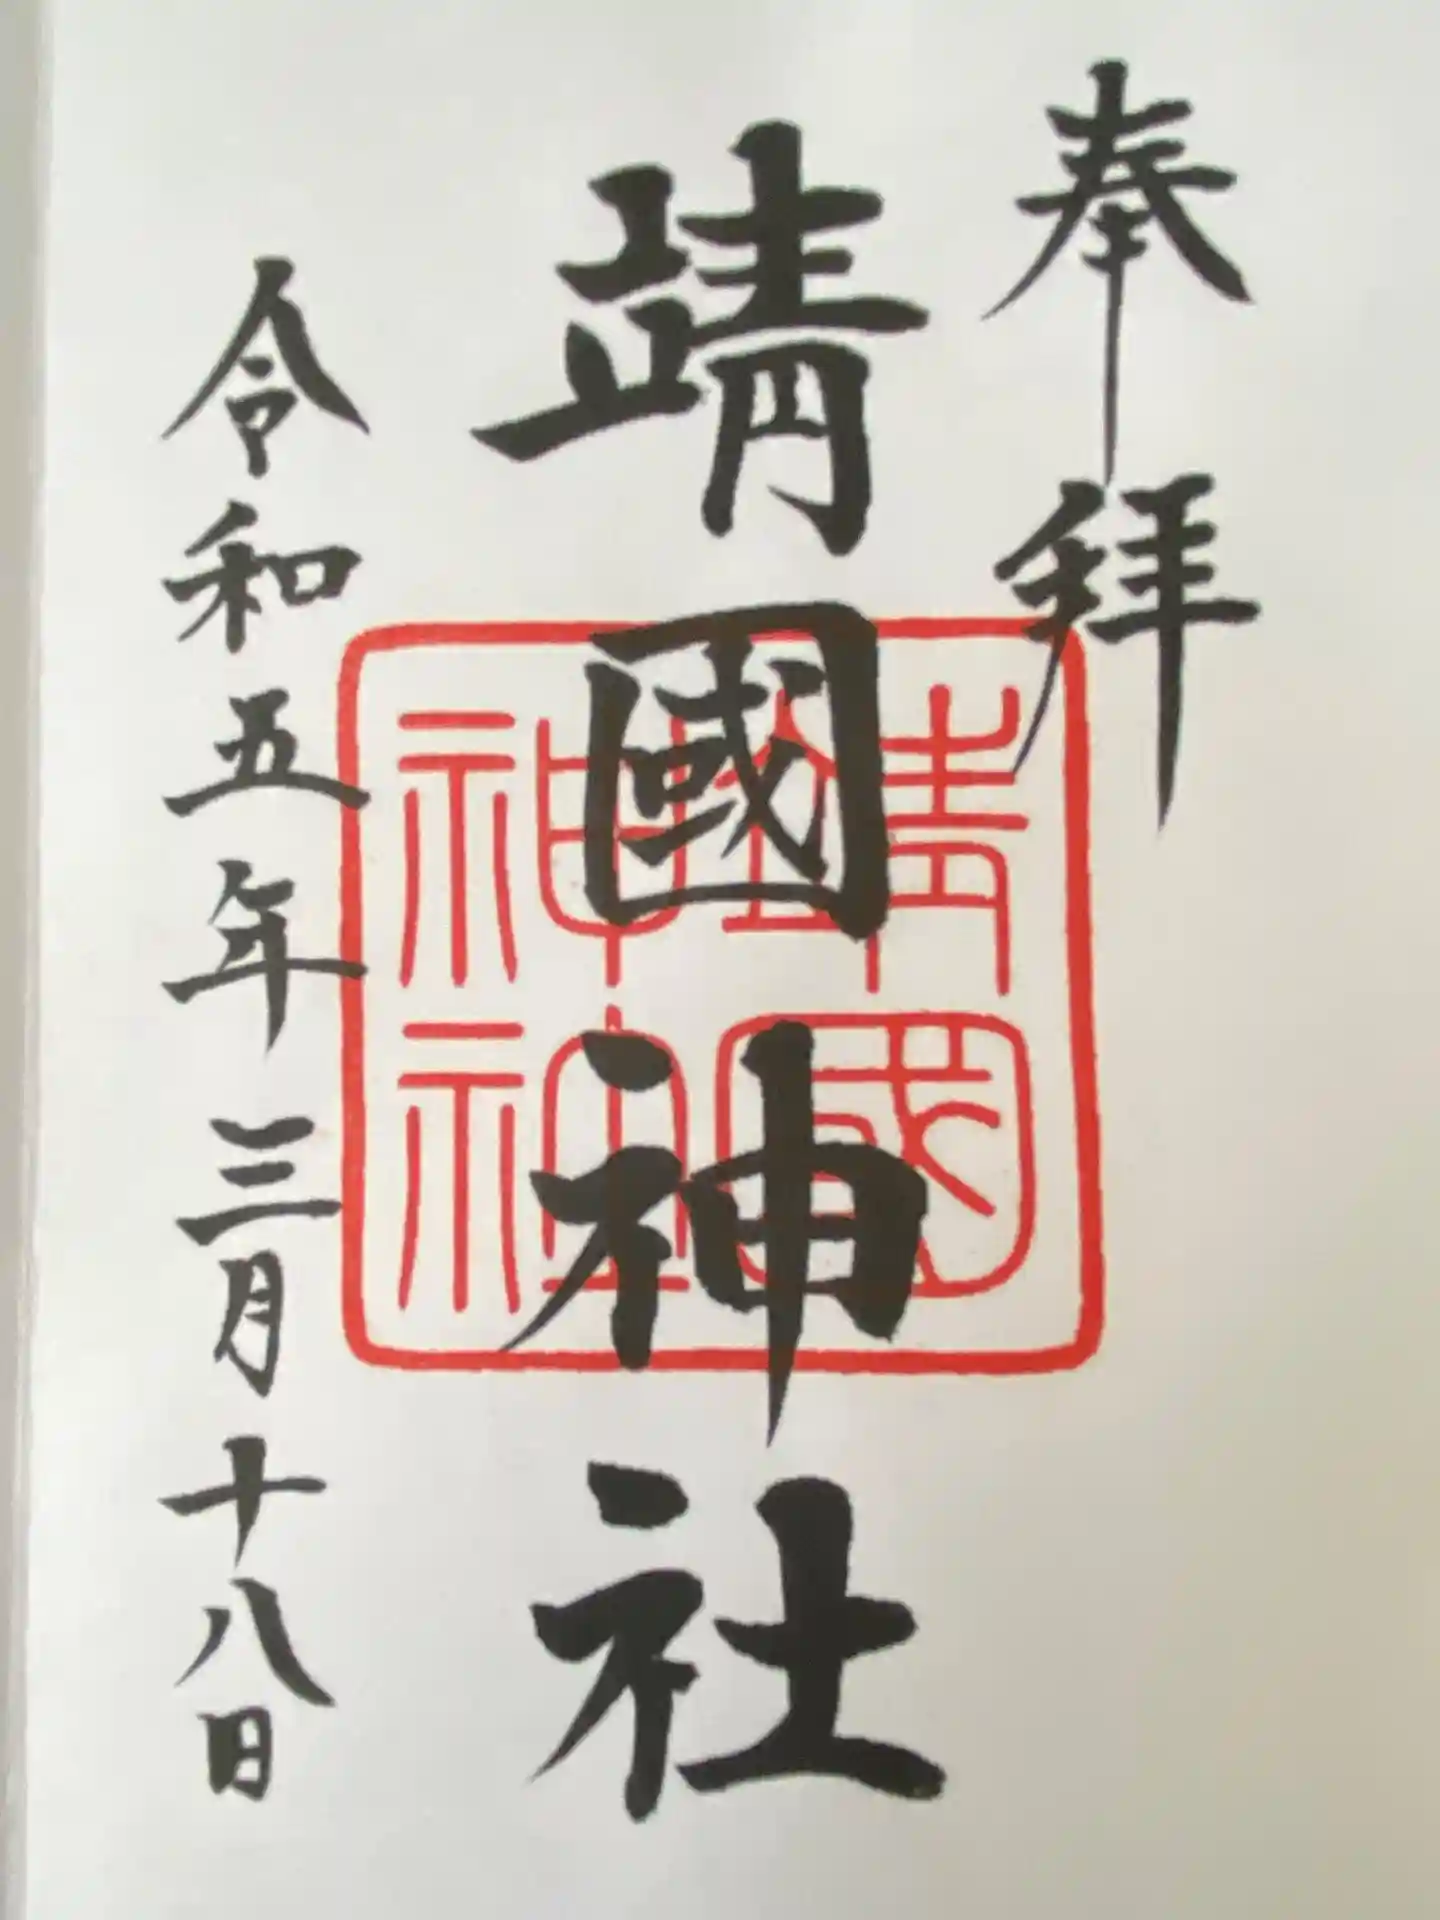 奉拜
靖國神社
靖國
神社
令和五年三月十八日